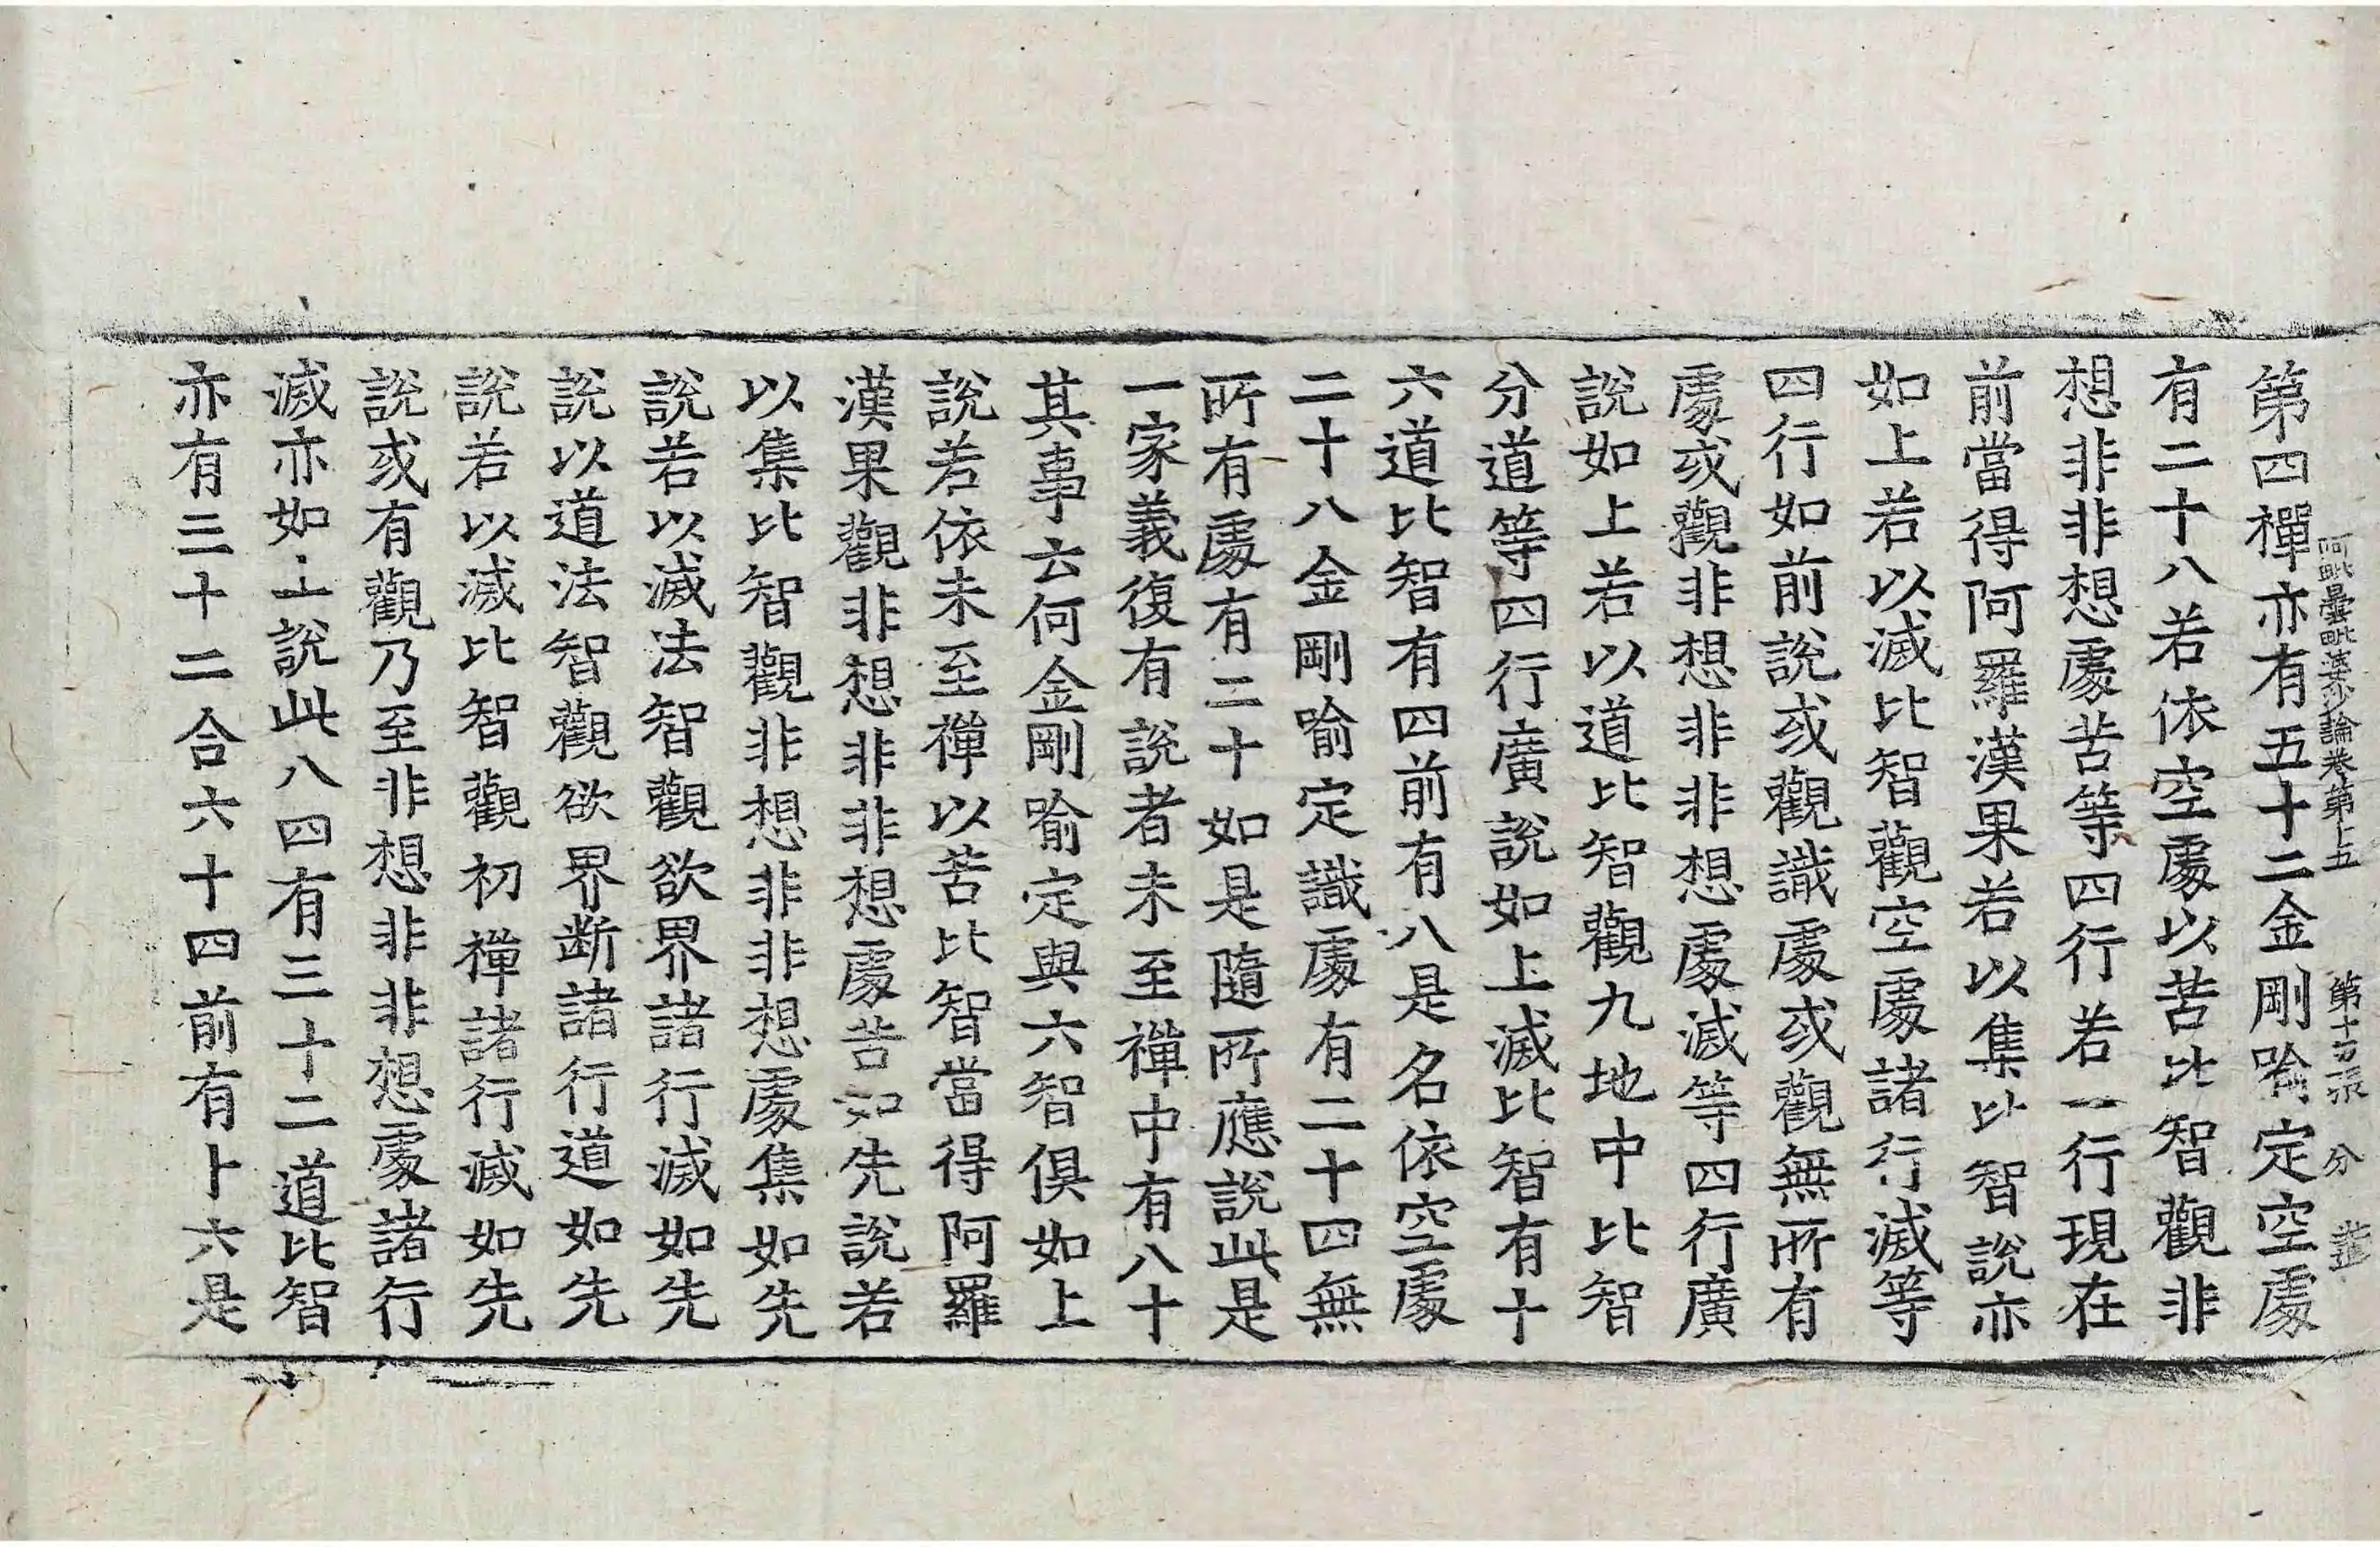 阿毗曇毗婆沙論卷第十五 第十　張 分
第四禪亦有五十二金剛喻定空處
有二十八若依空處以苦比智觀非
想非非想處苦等四行若一行現在
前當得阿羅漢果若以集比智說亦
如上若以滅比智觀空處諸行滅等
四行如前說或觀識處或觀無所有
處或觀非想非非想處滅等四行廣
說如上若以道比智觀九地中比智
分道等四行廣說如上滅比智有十
六道比智有四前有八是名依空處
二十八金剛喻定識處有二十四無
所有處有二十如是隨所應說此是
一家義復有說者未至禪中有八十
其事云何金剛喻定與六智俱如上
說若依未至禪以苦比智當得阿羅
漢果觀非想非非想處苦如先說若
以集比智觀非想非非想處集如先
說若以滅法智觀欲界諸行滅如先
說以道法智觀欲界断諸行道如先
說若以滅比智觀初禪諸行滅如先
說或有觀乃至非想非非想處諸行
滅亦如上說此八四有三十二道比智
亦有三十二合六十四前有十六是